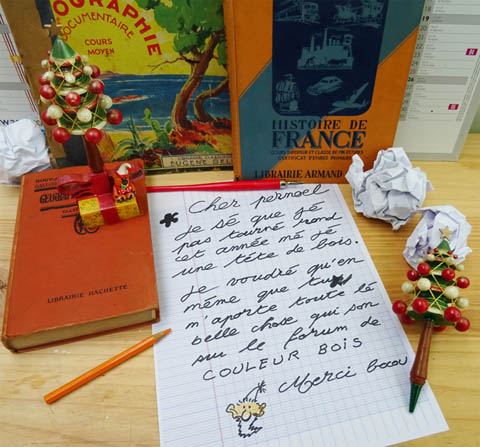 OGRAPHIE
DOCUMENTAIRE
COURS
MOYEN
EUGÈNE BEL
HISTOIRE DE
FRANCE
COURS SUPÉRIEUR ET CLASSE DE FIN D'ÉTUDES
CERTIFICAT D'ÉTUDES PRIMAIRES
LIBRAIRIE ARMAND
LIBRAIRIE HACHETTE
Cher pernoel
Je sé que jé
pas tourné rond
cet année mé jé
une tête de bois.
Je voudré qu'en
même que tu
m'aporte toute lé
belle chose qui son
sur le forum de
COULEUR BOIS
Merci bocou